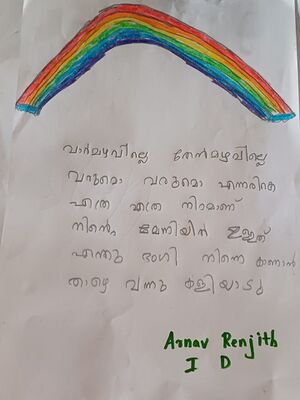 വാർമഴവില്ലെ തേൻമഴവില്ലെ
വരുമൊ വരുമൊ എന്നരികെ
എത്ര എത്ര നിറമാണ്
നിന്റെ മേനിയിൽ ഉള്ളത്
എന്തു ഭംഗി നിന്നെ കാണാൻ
താഴെ വന്നു കളിയാടു
Arnav Renjith
I D